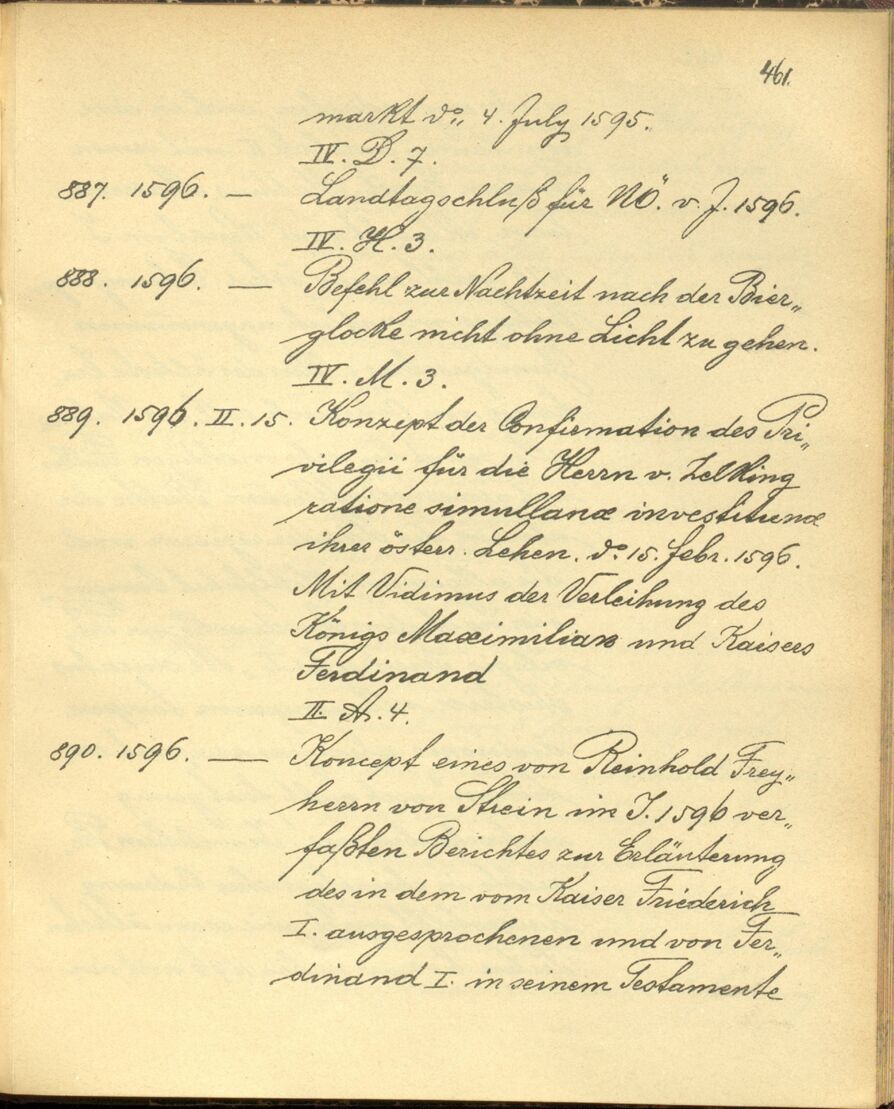 461.
markt do,, 4. July 1595.
IV. D. 7.
887. 1596. — Landtagschluß für NÖ. v. J. 1596.
IV. H. 3.
888. 1596. — Befehl zur Nachtzeit nach der Bier„
glocke nicht ohne Licht zu gehen.
IV. M. 3.
889. 1596. II. 15. Konzept der Confirmation des Pri„
vilegii für die Herrn v. Zelking
ratione simullanæ investituræ
ihrer österr. Lehen. do 15. Febr. 1596.
Mit Vidimus der Verleihung des
Königs Maximilian und Kaisers
Ferdinand
II. A. 4.
890. 1596. — Koncept eines von Reinhold Frey„
herrn von Strein im J. 1596 ver„
faßten Berichtes zur Erläuterung
des in dem vom Kaiser Friederich
I. ausgesprochenen und von Fer„
dinand I. in seinem Testamente